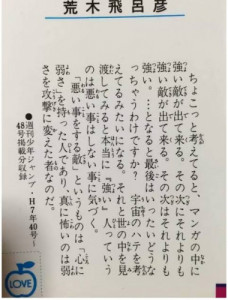 荒木飛呂彦
ちょこっと考えてると、マンガの中に
強い敵が出て来る。その次にそれよりも
強い敵が出て来る。その次はそれよりも
強い。…となると最後はいったいどうな
っちゃうわけですか？　宇宙のハテを考
えてるみたいになる。それと世の中を見
渡してみると本当に『強い』人っていう
のは悪い事はしない事に気づく。
「悪い事をする敵」というものは「心に
弱さ」を持った人であり、真に怖いのは弱
さを攻撃に変えた者なのだ。
●週刊少年ジャンプ・H7年40号〜
48号掲載分収録
LOVE